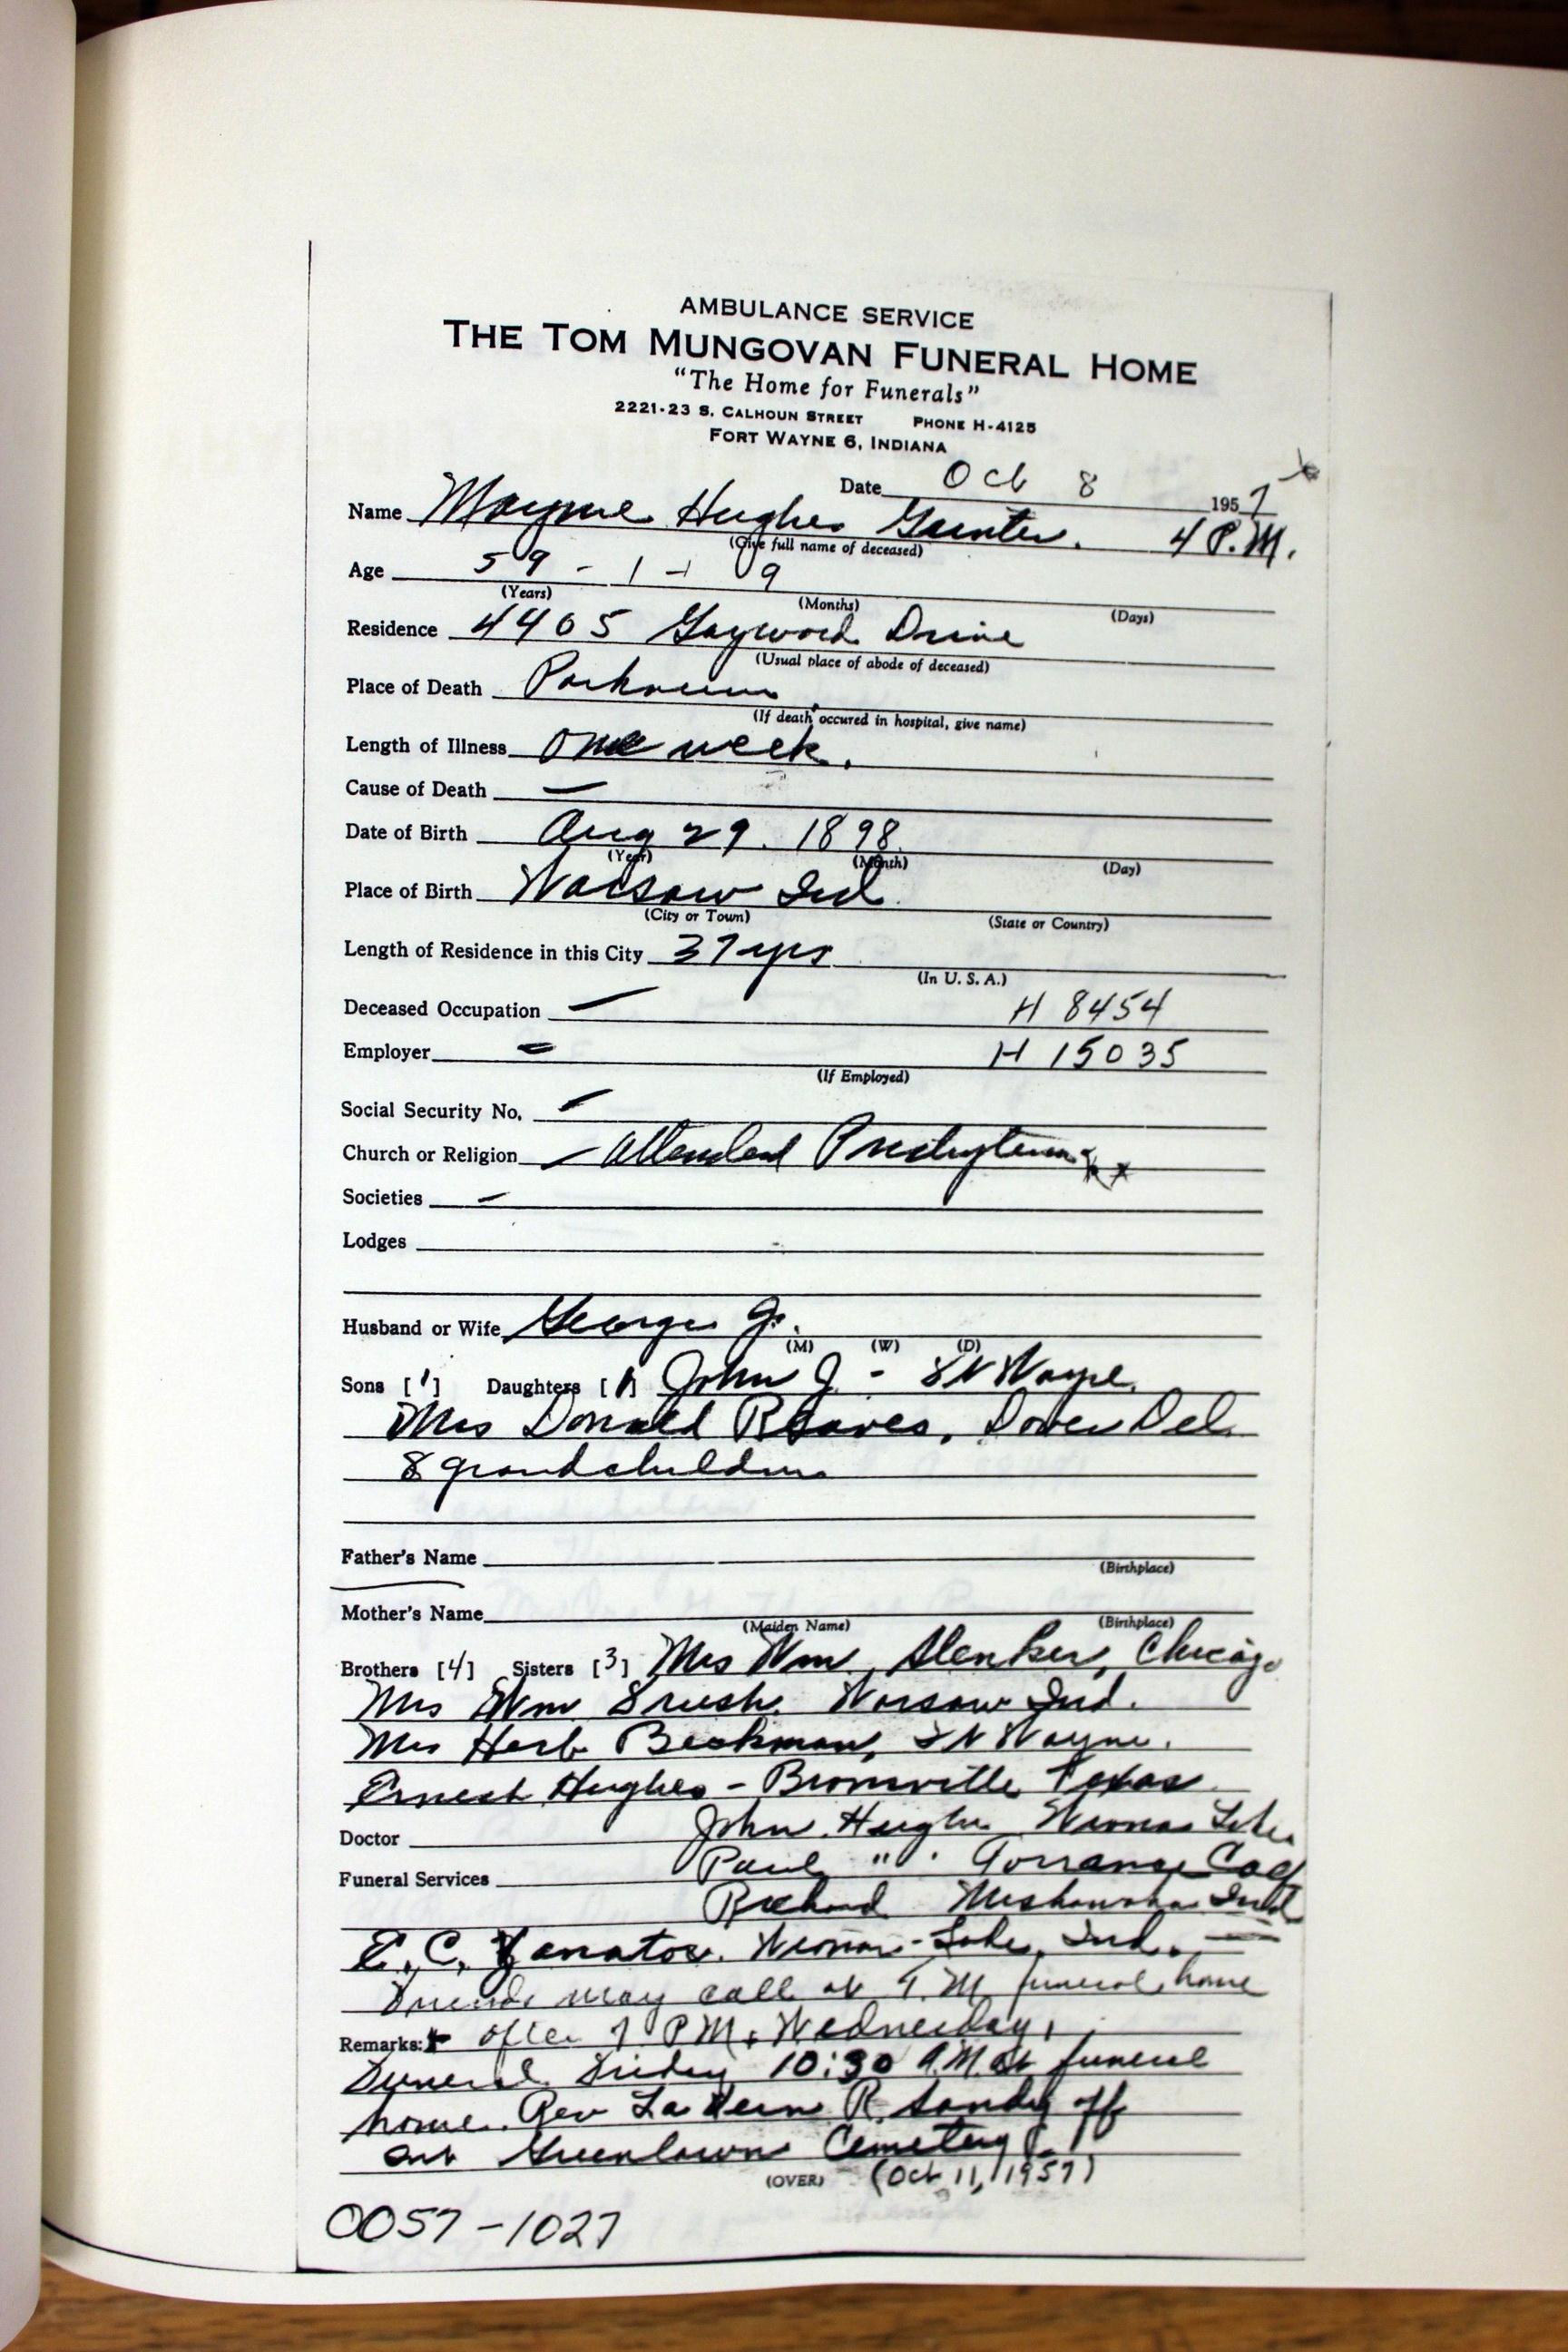 AMBULANCE SERVICE
THE TOM MUNGOVAN FUNERAL HOME
"The Home for Funerals"
2221-23 S. CALHOUN STREET PHONE H-4125
FORT WAYNE 6, INDIANA
Date Oct 8 1957
Name Mayme Hughes Gunter. 4 P.M.
(Give full name of deceased)
Age 59 - 1 - 9
(Years) (Months) (Days)
Residence 4405 Gaywood Drive
(Usual place of abode of deceased)
Place of Death Parkview
(If death occured in hospital, give name)
Length of Illness one week.
Cause of Death —
Date of Birth Aug 29. 1898.
(Year) (Month) (Day)
Place of Birth Warsaw Ind.
(City or Town) (State or Country)
Length of Residence in this City 37 yrs
(In U. S. A.)
Deceased Occupation — H 8454
Employer — H 15035
(If Employed)
Social Security No. —
Church or Religion — Attended Presbyterian
Societies —
Lodges
Husband or Wife George J.
(M) (W) (D)
Sons [1] Daughters [1] John J. - Ft Wayne.
Mrs Donald Reaves, Dover Del.
8 grandchildren
Father's Name
(Birthplace)
Mother's Name
(Maiden Name) (Birthplace)
Brothers [4] Sisters [3] Mrs Wm. Slenker, Chicago
Mrs Wm Warsaw Ind.
Mrs Herb Beckman, Ft Wayne.
Ernest Hughes - Brownsville Texas
Doctor John Hughes Winona Lake
Funeral Services Paul " Torrance Calf
Richard Mishawaka Ind
E. C. Winona-Lake, Ind. —
Friends may call at T.M. funeral home
Remarks: after 7 PM. Wednesday,
Funeral Friday 10:30 A.M. at funeral
home. Rev La Vern R. off
Int Greenlawn Cemetery.
(OVER) (Oct 11, 1957)
0057-1027